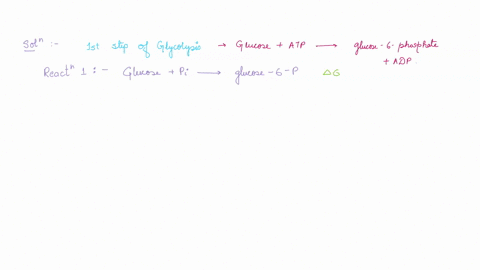 Solⁿ :- 1st step of Glycolysis → Glucose + ATP → glucose-6-phosphate
+ ADP
Reactⁿ 1 :- Glucose + Pi → glucose-6-P ΔG